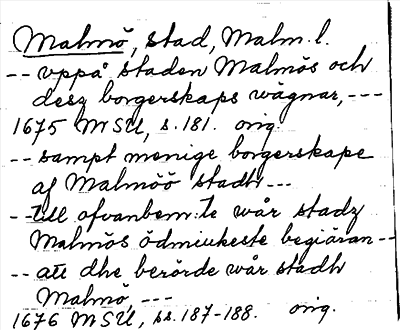 Malmö, stad, Malm. l.
-- vppå staden Malmös och
desz borgerskaps wägnar, ---
1675 MSU, s. 181. orig.
-- sampt menige borgerskape
af Malmöö stadh ---
-- till ofvanbem:te wår stadz
Malmös ödmiukeste begiäran --
-- att dhe berörde wår stadh
Malmö, ---
1676 MSU, ss. 187-188. orig.